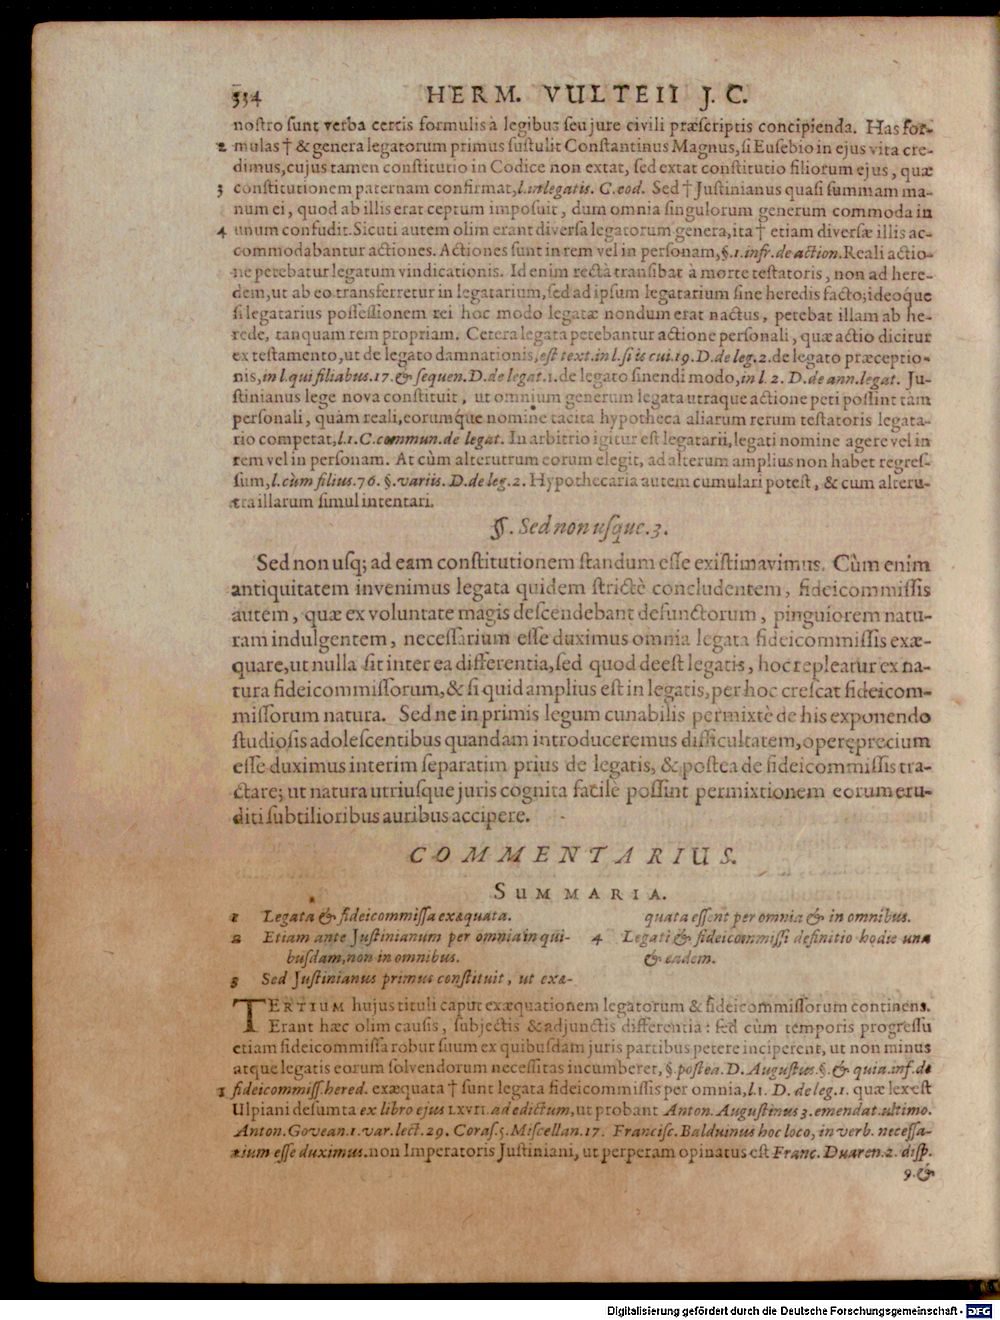 334 HERM. VULTEII J. C.
nostro sunt verba certis formulis à legibus seu jure civili præscriptis concipienda. Has for-
2 mulas † & genera legatorum primus sustulit Constantinus Magnus, si Eusebio in ejus vita cre-
dimus, cujus tamen constitutio in Codice non extat, sed extat constitutio filiorum ejus, quæ
3 constitutionem paternam confirmat, l. in legatis. C. eod. Sed † Justinianus quasi summam ma-
num ei, quod ab illis erat ceptum imposuit, dum omnia singulorum generum commoda in
4 unum confudit. Sicuti autem olim erant diversa legatorum genera, ita † etiam diversæ illis ac-
commodabantur actiones. Actiones sunt in rem vel in personam, §. 1. infr. de action. Reali actio-
ne petebatur legatum vindicationis. Id enim rectà transibat à morte testatoris, non ad here-
dem, ut ab eo transferretur in legatarium, sed ad ipsum legatarium sine heredis facto; ideoque
si legatarius possessionem rei hoc modo legatæ nondum erat nactus, petebat illam ab he-
rede, tanquam rem propriam. Cetera legata petebantur actione personali, quæ actio dicitur
ex testamento, ut de legato damnationis, est text. in l. si is cui. 19. D. de leg. 2. de legato præceptio-
nis, in l. qui filiabus. 17. & sequen. D. de legat. 1. de legato sinendi modo, in l. 2. D. de ann. legat. Ju-
stinianus lege nova constituit, ut omnium generum legata utraque actione peti possint tàm
personali, quàm reali, eorumq́ue nomine tacita hypotheca aliarum rerum testatoris legata-
rio competat, l. 1. C. commun. de legat. In arbitrio igitur est legatarii, legati nomine agere vel in
rem vel in personam. At cùm alterutrum eorum elegit, ad alterum amplius non habet regres-
sum, l. cùm filius. 76. §. variis. D. de leg. 2. Hypothecaria autem cumulari potest, & cum alteru-
tra illarum simul intentari.
§. Sed non usque. 3.
Sed non usq; ad eam constitutionem standum esse existimavimus. Cùm enim
antiquitatem invenimus legata quidem strictè concludentem, fideicommissis
autem, quæ ex voluntate magis descendebant defunctorum, pinguiorem natu-
ram indulgentem, necessarium esse duximus omnia legata fideicommissis exæ-
quare, ut nulla sit inter ea differentia, sed quod deest legatis, hoc repleatur ex na-
tura fideicommissorum, & si quid amplius est in legatis, per hoc crescat fideicom-
missorum natura. Sed ne in primis legum cunabilis permixtè de his exponendo
studiosis adolescentibus quandam introduceremus difficultatem, operęprecium
esse duximus interim separatim prius de legatis, & postea de fideicommissis tra-
ctare; ut natura utriusque juris cognita facilè possint permixtionem eorum eru-
diti subtilioribus auribus accipere.
COMMENTARIUS.
SUMMARIA.
1 Legata & fideicommissa exæquata.
2 Etiam ante Justinianum per omnia in qui-
busdam, non in omnibus.
3 Sed Justinianus primus constituit, ut exæ-
quata essent per omnia & in omnibus.
4 Legati & fideicommissi definitio hodie una
& eadem.
TERTIUM hujus tituli caput exæquationem legatorum & fideicommissorum continens.
Erant hæc olim causis, subjectis & adjunctis differentia: sed cùm temporis progressu
etiam fideicommissa robur suum ex quibusdam juris partibus petere inciperent, ut non minus
atque legatis eorum solvendorum necessitas incumberet, §. postea. D. Augustus. §. & quia. inf. de
1 fideicommiss. hered. exæquata † sunt legata fideicommissis per omnia, l. 1. D. de leg. 1. quæ lex est
Ulpiani desumta ex libro ejus LXVII. ad edictum, ut probant Anton. Augustinus 3. emendat. ultimo.
Anton. Govean. 1. var. lect. 29. Coras. 5. Miscellan. 17. Francisc. Balduinus hoc loco, in verb. necessa-
rium esse duximus. non Imperatoris Justiniani, ut perperam opinatus est Franc. Duaren. 2. disp.
9. &
Digitalisierung gefördert durch die Deutsche Forschungsgemeinschaft - DFG